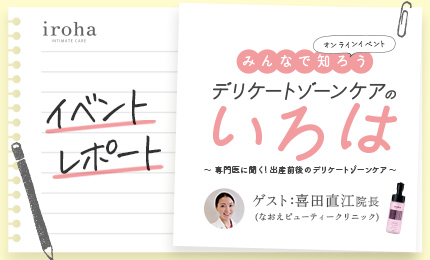 iroha
INTIMATE CARE
イベント
レポート
オンラインイベント
みんなで知ろう
デリケートゾーンケアの
いろは
〜 専門医に聞く!出産前後のデリケートゾーンケア 〜
ゲスト:喜田直江院長
(なおえビューティークリニック)